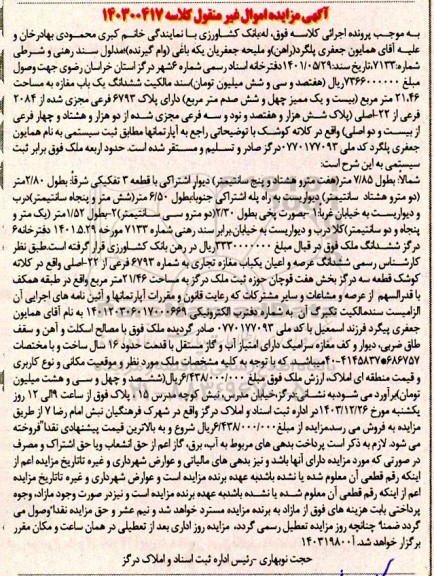 آگهی مزایده اموال غیر منقول کلاسه ۱۴۰۳۰۰۴۱۷
به موجب پرونده اجرائی کلاسه فوق، له بانک کشاورزی با نمایندگی خانم کبری محمودی بهادرخان و
علیه آقای همایون جعفری پلگرد(راهن)و ملیحه جعفریان یکه باغی (وام گیرنده)مدلول سند رهنی و شرطی
شماره:۷۱۳۳،تاریخ سند:۱۴۰۱/۰۵/۲۹دفترخانه اسناد رسمی شماره ۶شهر درگز استان خراسان رضوی جهت وصول
۷۳۶۶۰۰۰۰۰۰ریال (هفتصد و سی و شش میلیون تومان)سند مالکیت ششدانگ یک باب مغازه به مساحت
۲۱،۴۶ متر مربع (بیست و یک ممیز چهل و شش صدم متر مربع) دارای پلاک ۶۷۹۳ فرعی مجزی شده از ۲۰۸۴
فرعی از ۲۲-اصلی (پلاک شش هزار و هفتصد و نود و سه فرعی مجزی شده از دو هزار و هشتاد و چهار فرعی
از بیست و دو اصلی) واقع در کلاته کوشک با توضیحاتی راجع به آپارتمانها مطابق ثبت سیستمی به نام همایون
جعفری پلگرد کد ملی ۰۷۷۰۱۷۷۰۹۳درگز صادر و تسلیم و مستقر شده است. حدود اربعه ملک فوق برابر ثبت
سیستمی به این شرح است:
شمالا: بطول ۷/۸۵ متر(هفت مترو هشتاد و پنج سانتیمتر) دیوار اشتراکی با قطعه ۳ تفکیکی شرقاً: بطول ۲/۸۰متر
(دو مترو هشتاد سانتیمتر) دیواریست به راه پله اشتراکی جنوباًبطول ۶/۵۰ متر(شش متر و پنجاه سانتیمتر)درب
و دیواریست به خیابان غرباً:۱-بصورت پخی بطول ۲/۳۰(دو مترو سی سانتیمتر)۲-بطول ۱/۵۲متر (یک متر و
پنجاه و دو سانتیمتر)کلا درب و دیواریست به خیابان.برابر سند رهنی شماره ۷۱۳۳ مورخه ۱۴۰۱.۵.۲۹ دفترخانه۶
درگز ششدانگ ملک فوق در قبال مبلغ ۳۳۳۰۰۰۰۰۰۰ریال در رهن بانک کشاورزی قرار گرفته است.طبق نظر
کارشناس رسمی ششدانگ عرصه و اعیان یکباب مغازه تجاری به شماره ۶۷۹۳ فرعی از ۲۲-اصلی واقع در کلاته
کوشک قطعه سه درگز بخش هفت قوچان حوزه ثبت ملک درگز به مساحت ۲۱/۴۶متر مربع واقع در طبقه همکف
با قدرالسهم از عرصه و مشاعات و سایر مشترکات که رعایت قانون و مقررات آپارتمانها و آئین نامه های اجرایی آن
الزامیست سندمالکیت تکبرگ آن به شماره دفترب الکترونیکی ۱۴۰۱۲۰۳۰۶۰۱۷۰۰۰۶۶۹ به نام آقای همایون
جعفری پیگرد فرزند اسمعیل با کد ملی ۰۷۷۰۱۷۷۰۹۳ صادر گردیده ملک فوق با مصالح اسکلت و آهن و سقف
طاق ضربی، دیوار و کف مغازه سرامیک دارای امتیاز آب و گاز مستقل با قدمت حدود ۱۶ سال ساخت و با مختصات
میباشد.که با توجه به کلیه مشخصات ملک مورد نظر و موقعیت مکانی و نوع کاربری
و قیمت منطقه ای املاک، ارزش ملک فوق مبلغ ۶/۴۳۸۰۰۰۰۰۰ریال(ششصد و چهل و سی و هشت میلیون
تومان)برآورد می شودبه نشانی درگز،خیابان مدرس، نبش کوچه مدرس ۱۵، پلاک فوق از ساعت ۹الی ۱۲ روز
یکشنبه مورخ ۱۴۰۳/۱۲/۲۶در اداره ثبت اسناد و املاک درگز واقع در شهرک فرهنگیان نبش امام رضا ۷ از طریق
مزایده به فروش می رسد.مزایده از مبلغ۶/۴۳۸/۰۰۰/۰۰۰ریال شروع و به بالاترین قیمت پیشنهادی نقدا"فروخته
می شود. لازم به ذکر است پرداخت بدهی های مربوط به آب،برق، گاز اعم از حق انشعاب ویا حق اشتراک و مصرف
در صورتی که مورد مزایده دارای آنها باشد و نیز بدهی های مالیاتی و عوارض شهرداری و غیره تاتاریخ مزایده اعم از
اینکه رقم قطعی آن معلوم شده یا نشده باشدبه عهده برنده مزایده است و عوارض شهرداری و غیره تاتاریخ مزایده
اعم از اینکه رقم قطعی آن معلوم شده یا نشده باشدبه عهده برنده مزایده است و نیزدر صورت وجود مازاد، وجوه
پرداختی بابت هزینه های فوق از مازاد به برنده مزایده مسترد خواهد شد و نیم عشر و حق مزایده نقدا"وصول می
گردد ضمنا" چنانچه روز مزایده تعطیل رسمی گردد، مزایده روز اداری بعد از تعطیلی در همان ساعت و مکان مقرر
برگزار خواهد شد.آ۱۴۰۳۱۹۸۰۰
حجت نوبهاری -رئیس اداره ثبت اسناد و املاک درگز